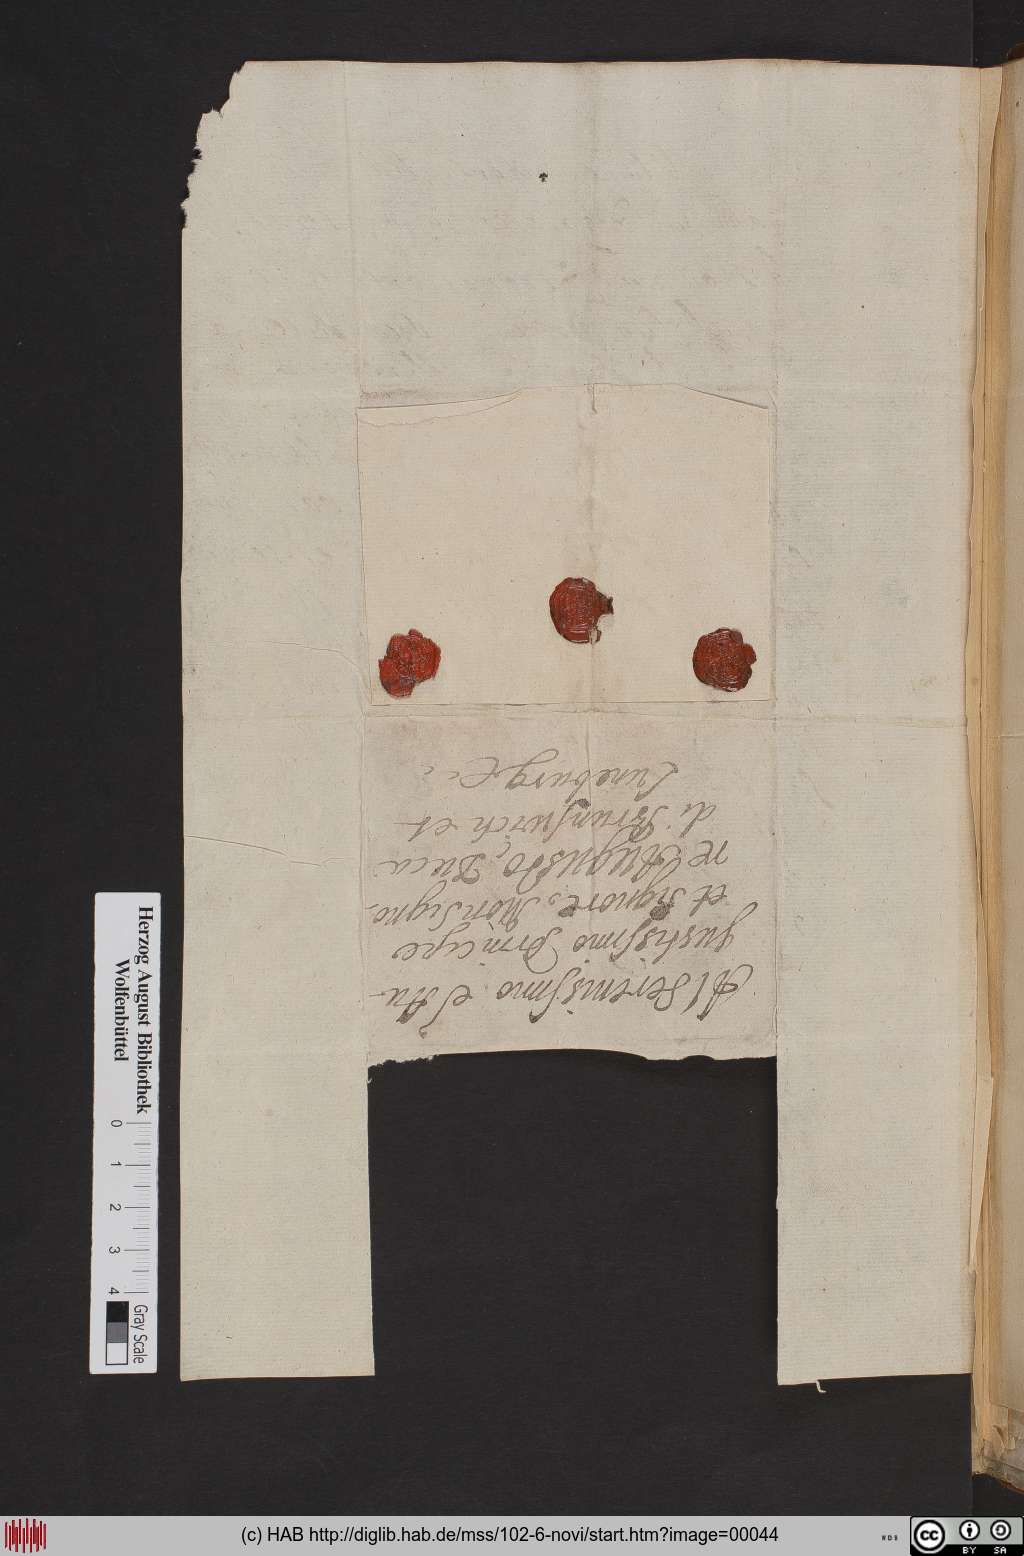 Al Serenissimo et Au-
gustissimo Principe
et Signore, Monsigno-
re Augusto, Duca
di Brunswich et
Luneburg &c:
Herzog August Bibliothek
Wolfenbüttel
0 1 2 3 4
Gray Scale
(c) HAB http://diglib.hab.de/mss/102-6-novi/start.htm?image=00044
WDB
cc BY SA